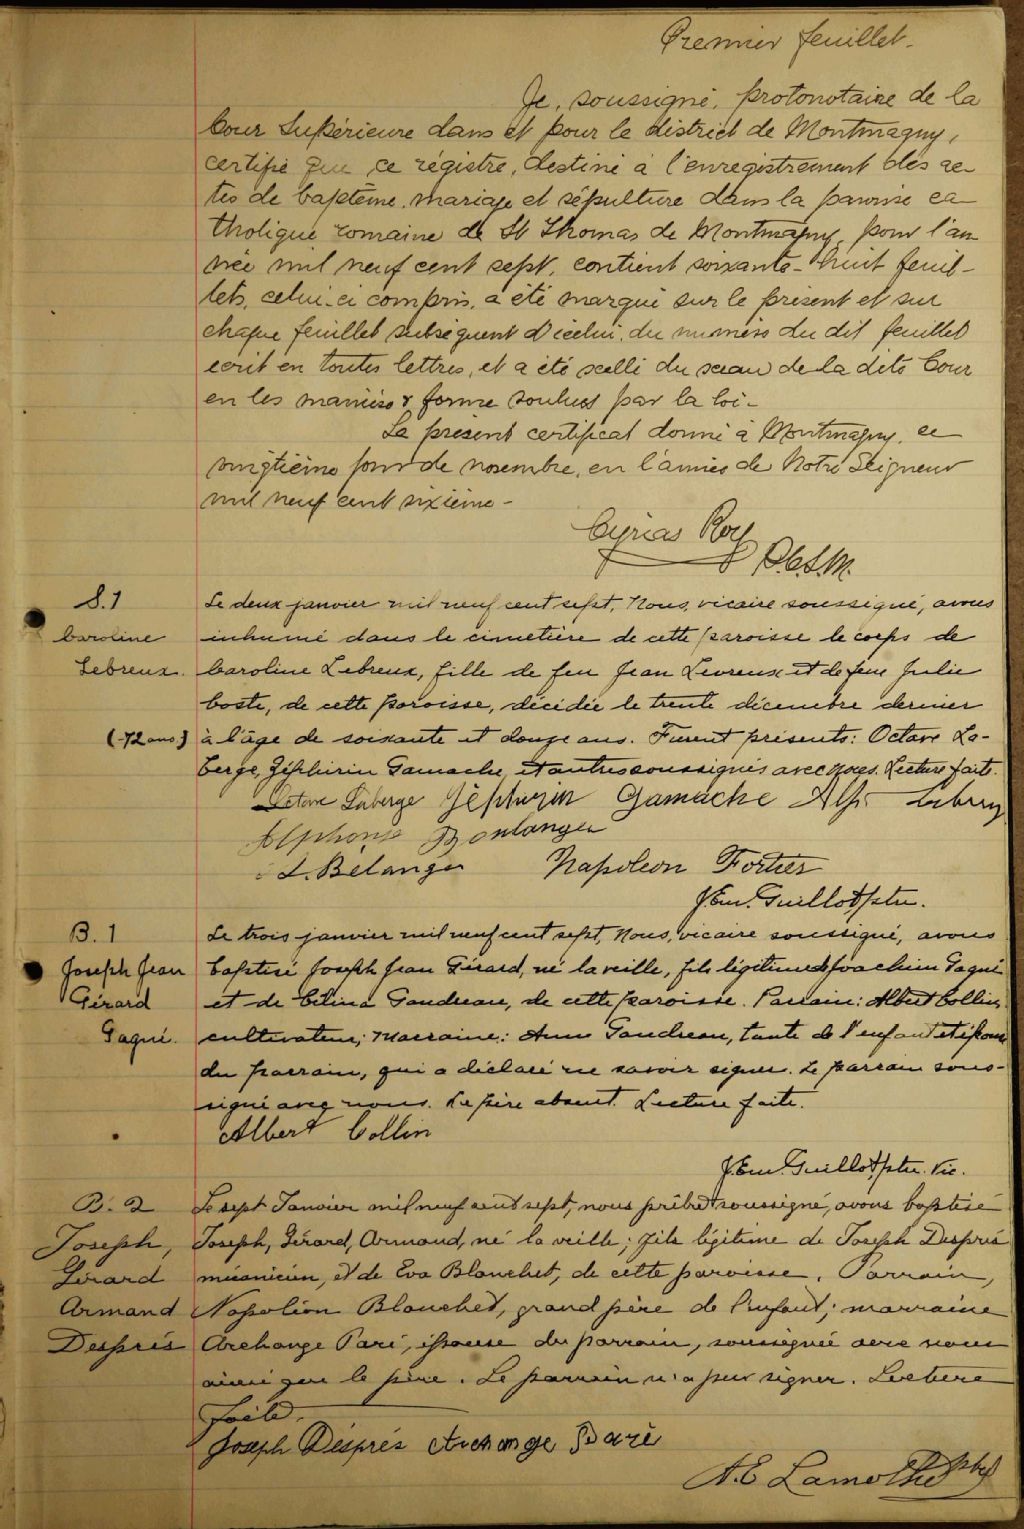 Premier feuillet.
Je, soussigné, protonotaire de la
Cour Supérieure dans et pour le district de Montmagny,
certifie que ce régistre, destiné à l'enregistrement des ac-
tes de baptême, mariage et sépulture dans la paroisse ca
tholique romaine de St Thomas de Montmagny, pour l'an
née mil neuf cent sept, contient soixante-huit feuil-
lets, celui-ci compris, a été marqué sur le présent et sur
chaque feuillet subséquent d'icelui, du numéro du dit feuillet
écrit en toutes lettres, et a été scellé du sceau de la dite Cour
en les manière & forme voulues par la loi-
Le présent certificat donné à Montmagny, ce
vingtième jour de novembre, en l'année de Notre Seigneur
mil neuf cent sixième-
Cyrias Roy
P.C.S.M.
S.1
Caroline
Lebreux.
(72 ans)
Le deux janvier mil neuf cent sept, Nous, vicaire soussigné, avons
inhumé dans le cimetière de cette paroisse le corps de
Caroline Lebreux, fille de feu Jean Levreux et de feue Julie
Coste, de cette paroisse, décédée le trente décembre dernier
à l'âge de soixante et douze ans. Furent présents: Octave La-
berge, Zéphirin Gamache, et autres soussignés avec nous. Lecture faite.
Octave Laberge Zéphirin Gamache Alp
Alphonse Boulanger
L. Bélanger Napoleon Fortier
J. Em. Guillot, ptre.
B. 1
Joseph Jean
Gérard
Gagné.
Le trois janvier mil neuf cent sept, Nous, vicaire soussigné, avons
baptisé Joseph Jean Gérard, né la veille, fils légitime de Joachim Gagné
et de Célina Gaudreau, de cette paroisse. Parrain: Albert Collin,
cultivateur; marraine: Anna Gaudreau, tante de l'enfant et épouse
du parrain, qui a déclaré ne savoir signer. Le parrain sous-
signé avec nous. Le père absent. Lecture faite.
Albert Collin
J. Em. Guillot, ptre. Vic.
B. 2
Joseph,
Gérard
Armand
Després
Le sept Janvier mil neuf cent sept, nous prêtre soussigné, avons baptisé
Joseph, Gérard, Armand, né la veille; fils légitime de Joseph Després
mécanicien, et de Eva Blanchet, de cette paroisse. Parrain,
Napoléon Blanchet, grand père de l'enfant; marraine
Archange Paré, épouse du parrain, soussignée avec nous
ainsi que le père. Le parrain n'a pu signer. Lecture
faite.
Joseph Després Archange Paré
A. E Lamothe ptre